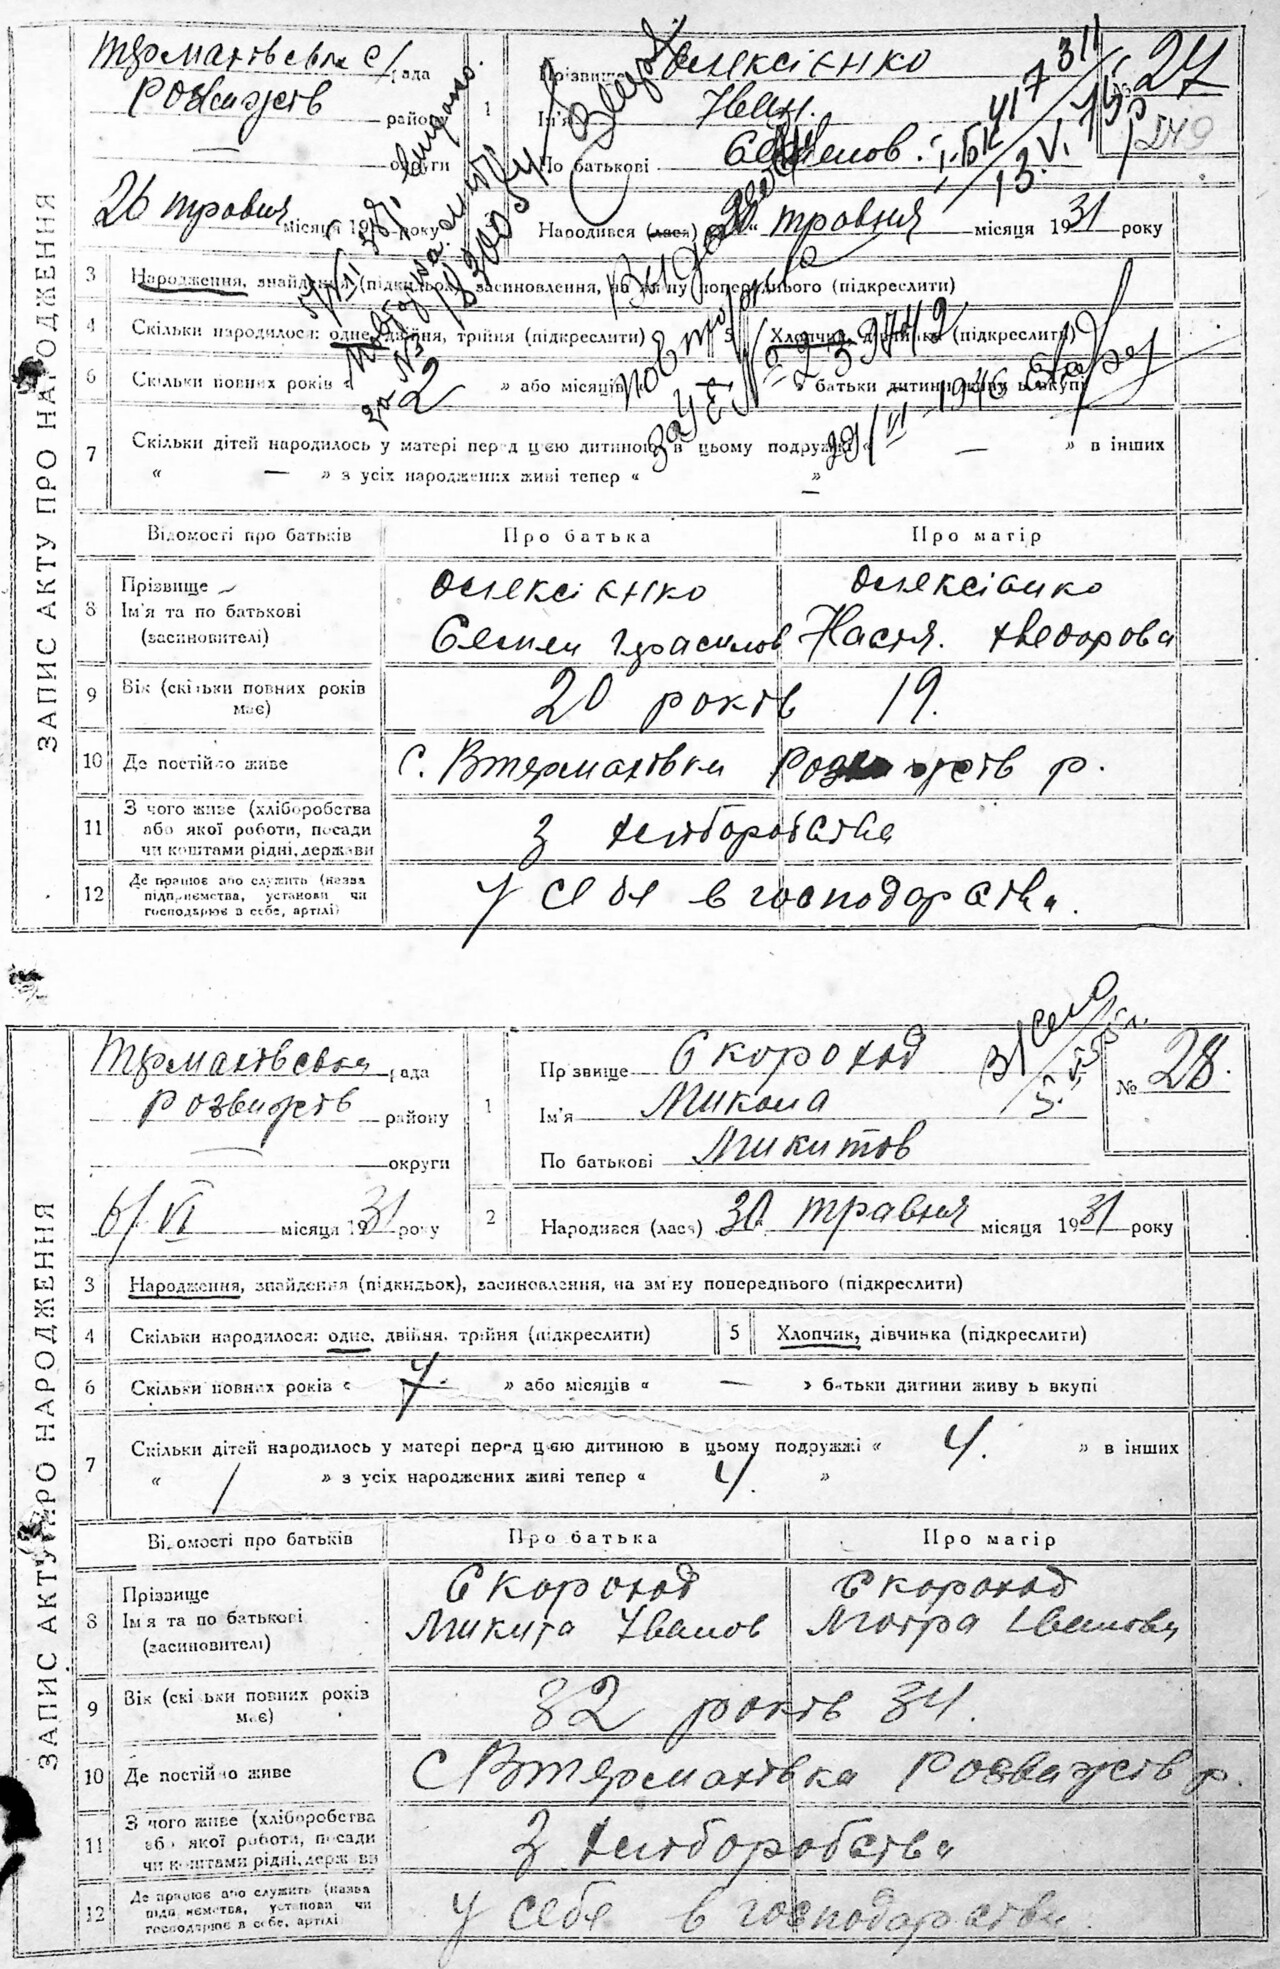 ЗАПИС АКТУ ПРО НАРОДЖЕННЯ
Термахівська с/рада
Розважів район
округи
26 травня місяця 19 року
1 Прізвище Олексієнко
Ім'я Іван.
По батькові Семенов.
№ 27
549
Народився (лася) травня місяця 1931 року
3 Народження, знайдення (підкидьок), засиновлення, на зміну попереднього (підкреслити)
4 Скільки народилося: одне, двійня, трійня (підкреслити) 5 Хлопчик, дівчинка (підкреслити)
6 Скільки повних років « » або місяців « » батьки дитини живуть вкупі
7 Скільки дітей народилось у матері перед цією дитиною в цьому подружжі « — » в інших
« — » з усіх народжених живі тепер « — »
видано
Повторно
1946
Відомості про батьків Про батька Про матір
8 Прізвище
Ім'я та по батькові
(засиновителі)
Олексієнко
Семен Герасимов
Олексієнко
Настя. Хведорова
9 Вік (скільки повних років має) 20 років 19.
10 Де постійно живе с. Втермахівка Розважів р.
11 З чого живе (хліборобства
або якої роботи, посади
чи коштами рідні, держави
з хліборобства
12 Де працює або служить (назва
підприємства, установи чи
господарює в себе, артілі)
у себе в господарстві.
ЗАПИС АКТУ ПРО НАРОДЖЕННЯ
Термахівська рада
Розважів району
округи
6/VI місяця 1931 року
1 Прізвище Скороход
Ім'я Микола
По батькові Микитов
№ 28.
2 Народився (лася) 30 травня місяця 1931 року
3 Народження, знайдення (підкидьок), засиновлення, на зміну попереднього (підкреслити)
4 Скільки народилося: одне, двійня, трійня (підкреслити) 5 Хлопчик, дівчинка (підкреслити)
6 Скільки повних років « 7 » або місяців « — » батьки дитини живуть вкупі
7 Скільки дітей народилось у матері перед цією дитиною в цьому подружжі « 4. » в інших
« / » з усіх народжених живі тепер « 4. »
Відомості про батьків Про батька Про матір
8 Прізвище
Ім'я та по батькові
(засиновителі)
Скороход
Микита Іванов
Скороход
Мотря Іванівна
9 Вік (скільки повних років має) 32 років 34.
10 Де постійно живе с Втермахівка Розважів р.
11 З чого живе (хліборобства
або якої роботи, посади
чи коштами рідні, держави
з хліборобства
12 Де працює або служить (назва
підприємства, установи чи
господарює в себе, артілі
у себе в господарстві.